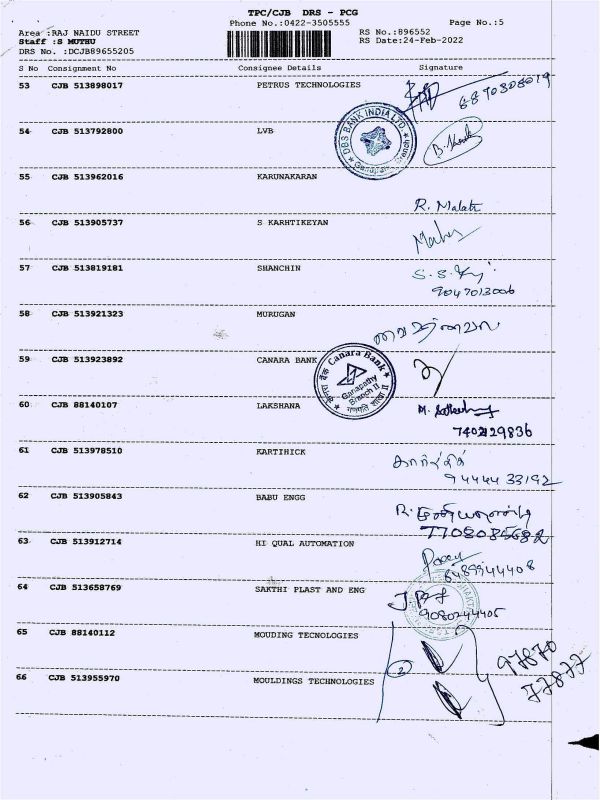 TPC/CJB DRS - PCG
Phone No.:0422-3505555
Page No.:5
Area :RAJ NAIDU STREET
RS No.:896552
Staff :S MUTHU
RS Date:24-Feb-2022
DRS No. :DCJB89655205
S No Consignment No Consignee Details Signature
53 CJB 513898017 PETRUS TECHNOLOGIES
54 CJB 513792800 LVB
DBS BANK INDIA LTD.
55 CJB 513962016 KARUNAKARAN
R. Malati
56 CJB 513905737 S KARHTIKEYAN
57 CJB 513819181 SHANCHIN
9047013006
58 CJB 513921323 MURUGAN
59 CJB 513923892 CANARA BANK
केनरा बैंक Canara Bank
Ganapathy
Branch II
गणपति शाखा II
60 CJB 88140107 LAKSHANA
7402129836
61 CJB 513978510 KARTIHICK
கார்த்திக்
94444 33192
62 CJB 513905843 BABU ENGG
63 CJB 513912714 HI QUAL AUTOMATION
8489944408
64 CJB 513658769 SAKTHI PLAST AND ENG
9080244405
65 CJB 88140112 MOUDING TECNOLOGIES
2
97870
77877
66 CJB 513955970 MOULDINGS TECHNOLOGIES